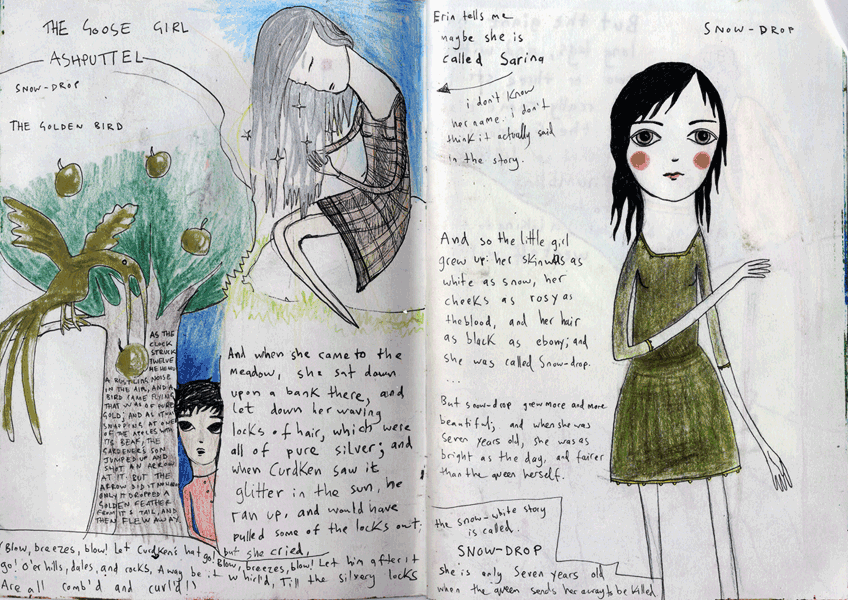 THE GOOSE GIRL
ASHPUTTEL
SNOW-DROP
THE GOLDEN BIRD
AS THE
CLOCK
STRUCK
TWELVE
HE HEARD
A RUSTLING NOISE
IN THE AIR, AND A
BIRD CAME FLYING
THAT WAS OF PURE
GOLD; AND AS IT WAS
SNAPPING AT ONE
OF THE APPLES WITH
ITS BEAK, THE
GARDENER'S SON
JUMPED UP AND
SHOT AN ARROW
AT IT. BUT THE
ARROW DID IT NO HARM
ONLY IT DROPPED A
GOLDEN FEATHER
FROM IT'S TAIL, AND
THEN FLEW AWAY.
And when she came to the
meadow, she sat down
upon a bank there, and
let down her waving
locks of hair, which were
all of pure silver; and
when CurdKen saw it
glitter in the sun, he
ran up, and would have
pulled some of the locks out;
but she cried,
(Blow, breezes, blow! Let CurdKen's hat go! Blow, breezes, blow! Let him after it
go! O'er hills, dales, and rocks, Away be it whirl'd, Till the silvery locks
Are all comb'd and curl'd!)
Erin tells me
maybe she is
called Sarina
i don't know
her name. i don't
think it actually said
in the story.
SNOW-DROP
And so the little girl
grew up: her skin was as
white as snow, her
cheeks as rosy as
the blood, and her hair
as black as ebony; and
she was called Snow-drop.
...
But snow-drop grew more and more
beautiful; and when she was
seven years old, she was as
bright as the day, and fairer
than the queen herself.
the snow-white story
is called.
SNOW-DROP
she is only seven years old
when the queen sends her away to be killed